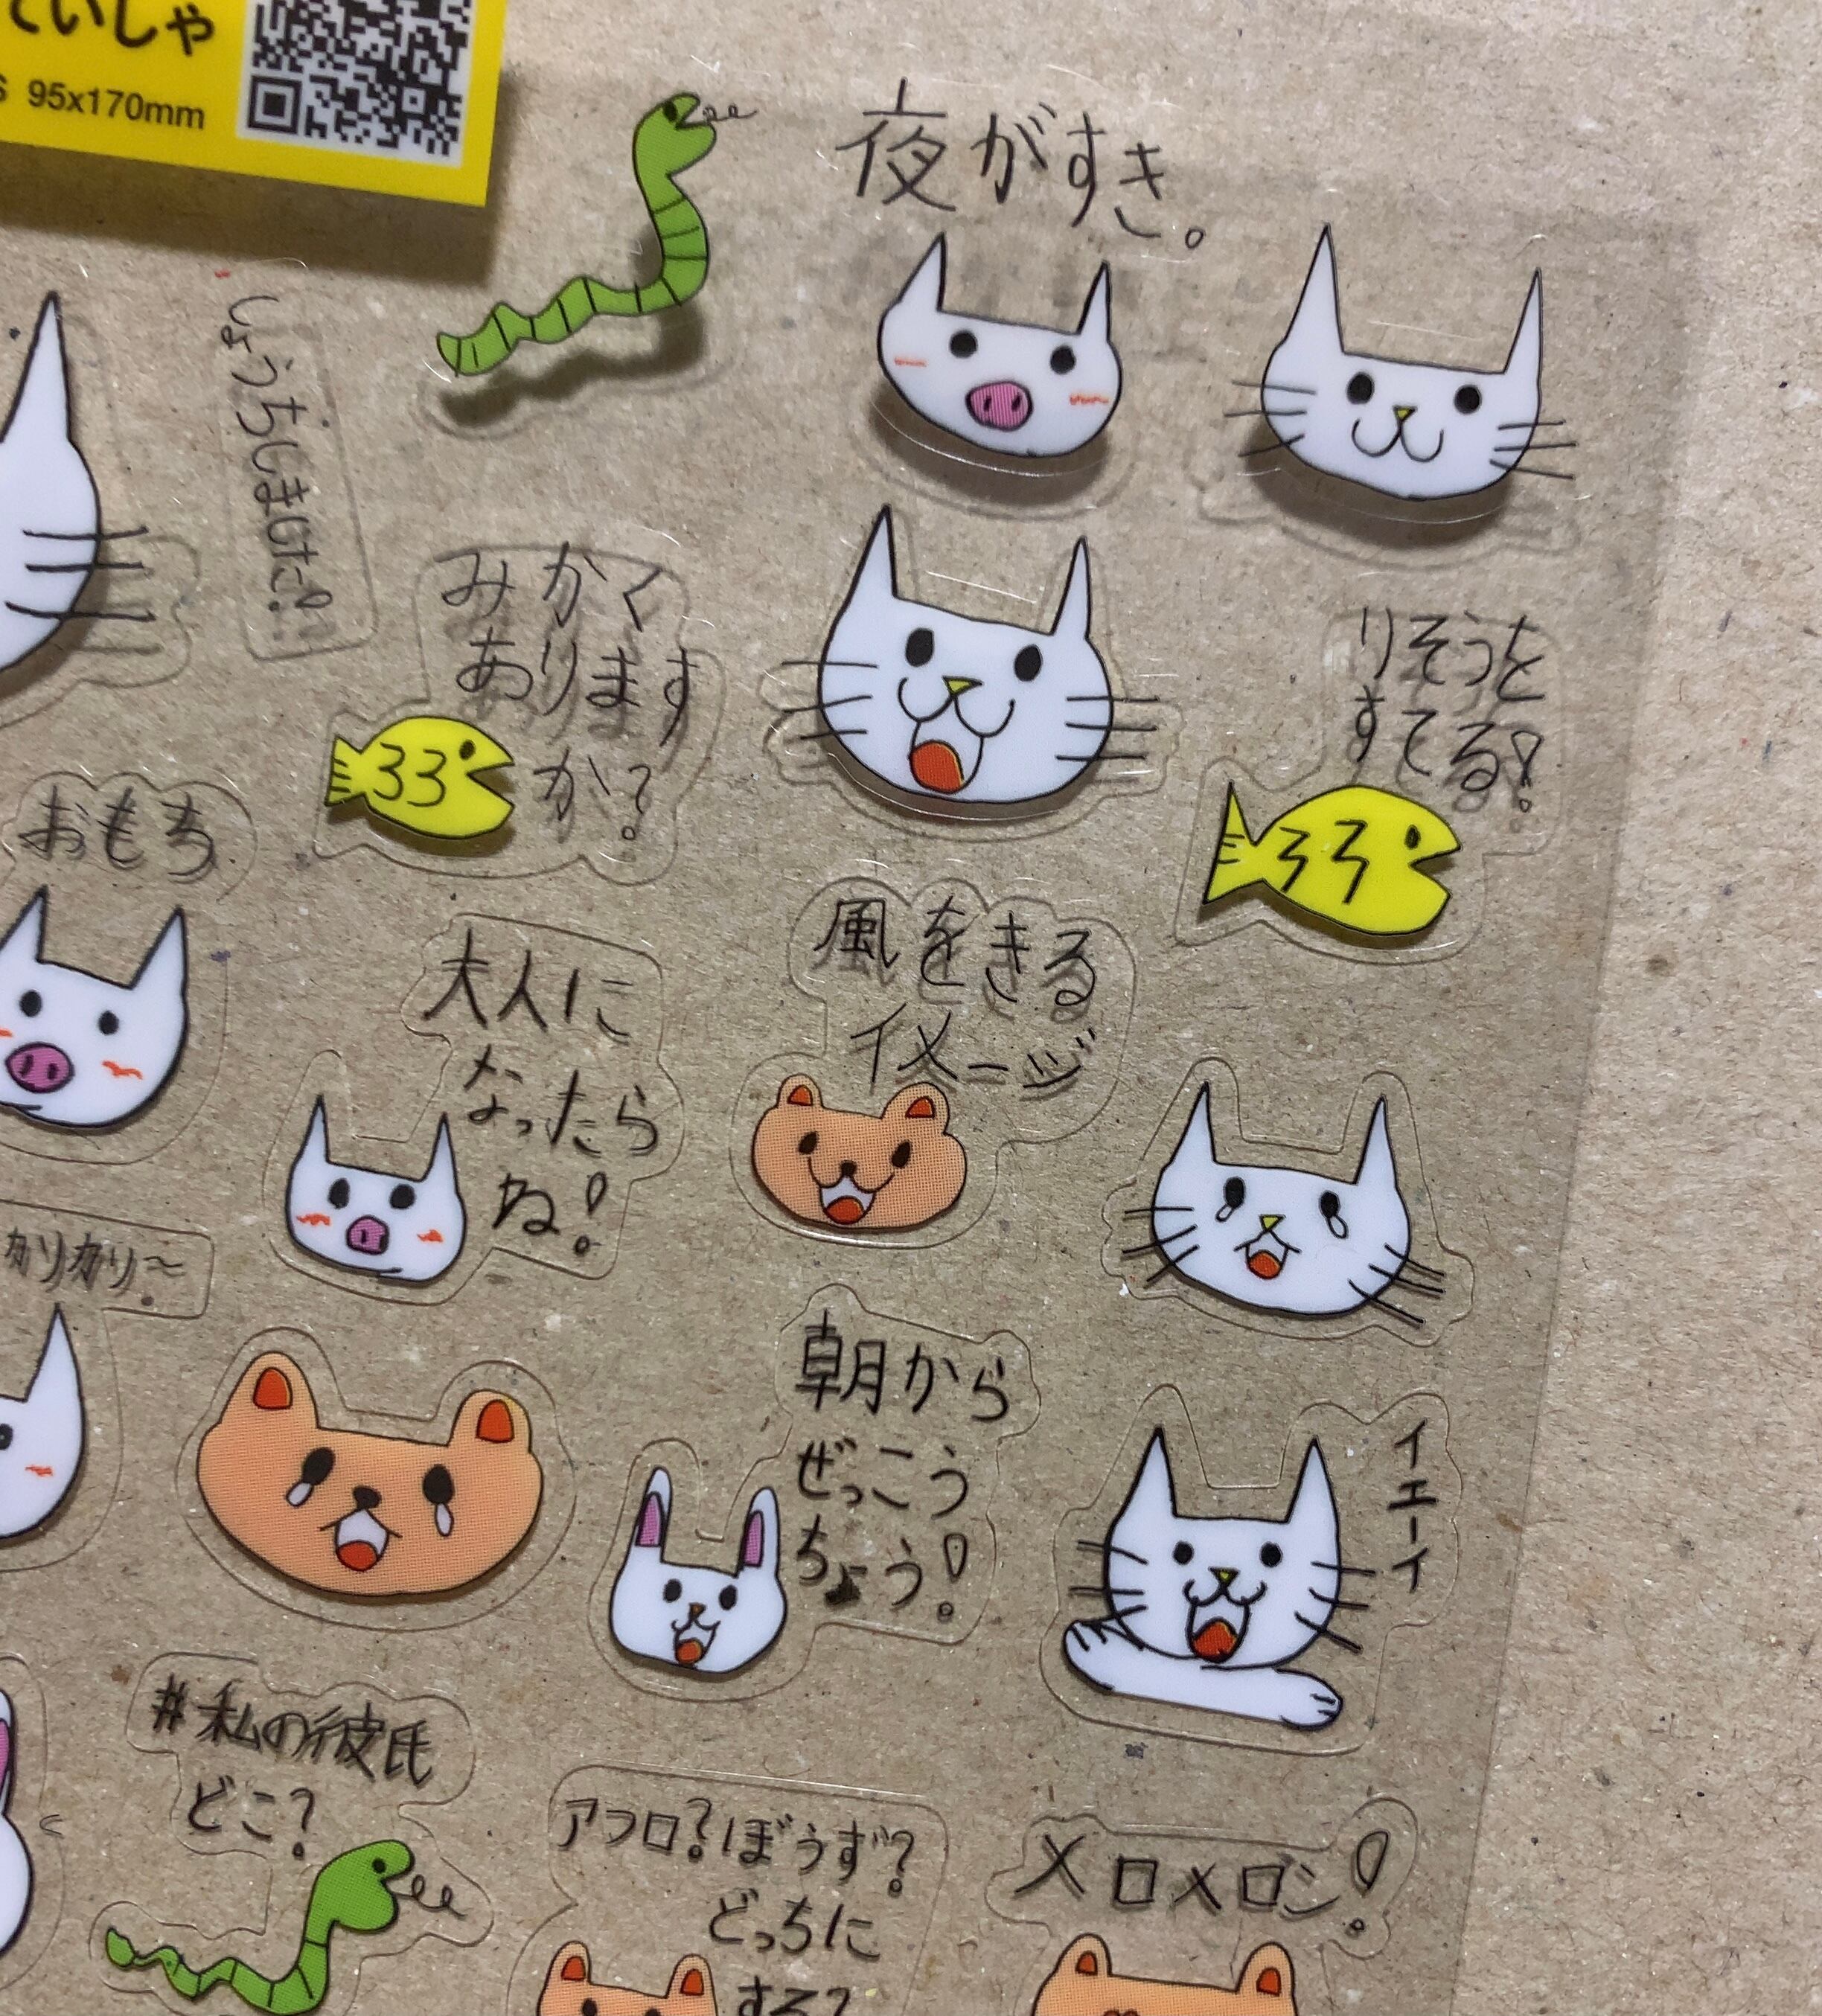 ていしゃ
95x170mm
夜がすき。
しょうちしました!
みかく
あります
か?
りそうを
すてる!
おもち
大人に
なったら
ね!
風をきる
イメージ
カリカリ〜
朝から
ぜっこう
ちょう!
イエーイ
#私の彼氏
どこ?
アフロ?ぼうず?
どっちに
する?
メロメロン!